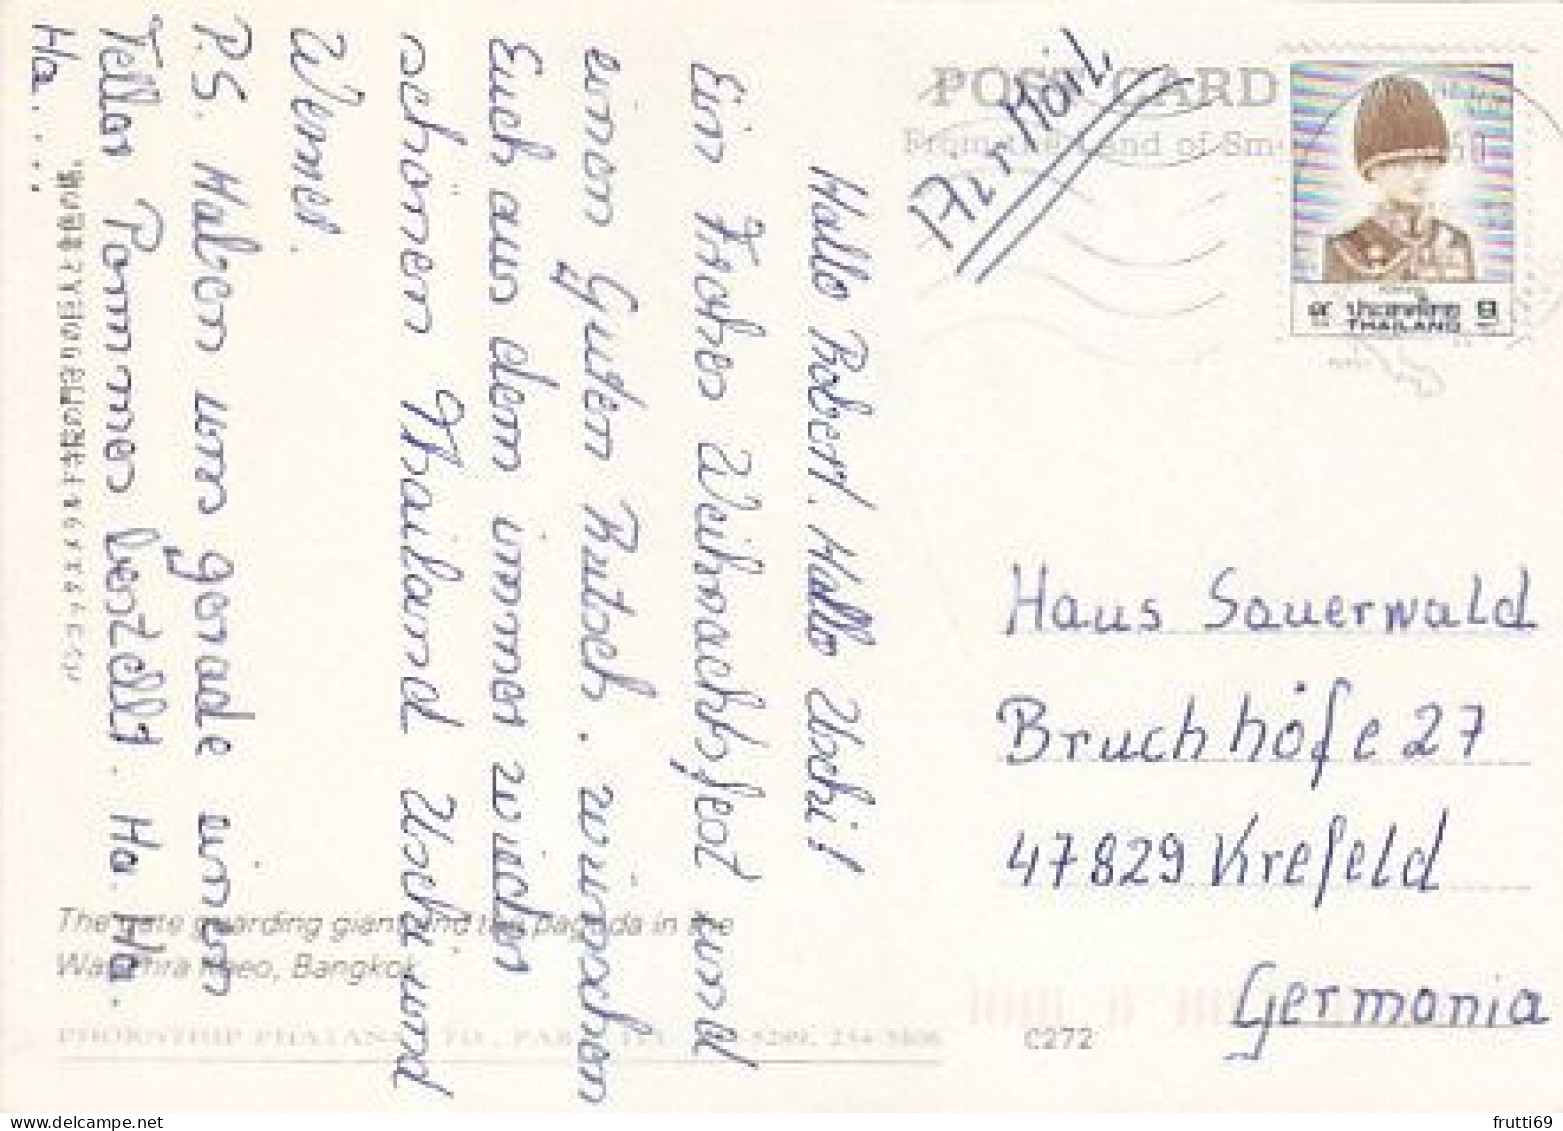 POST CARD
Air Mail
ประเทศไทย
THAILAND
Hallo Robert. Hallo Uschi!
Ein Frohes Weihnachtsfest und
einen Guten Rutsch. wünschen
Euch aus dem immer wieder
schönen Thailand Uschi und
Werner.
P.S. Haben uns gerade einen
Teller Pommes bestellt. Ha. Ha.
Ha....
Haus Sauerwald
Bruchhöfe 27
47829 Krefeld
Germania
The gate guarding giant and the pagoda in the
Wat Phra Kaeo, Bangkok
PHORNTHIP PHATANA
C272
frutti69